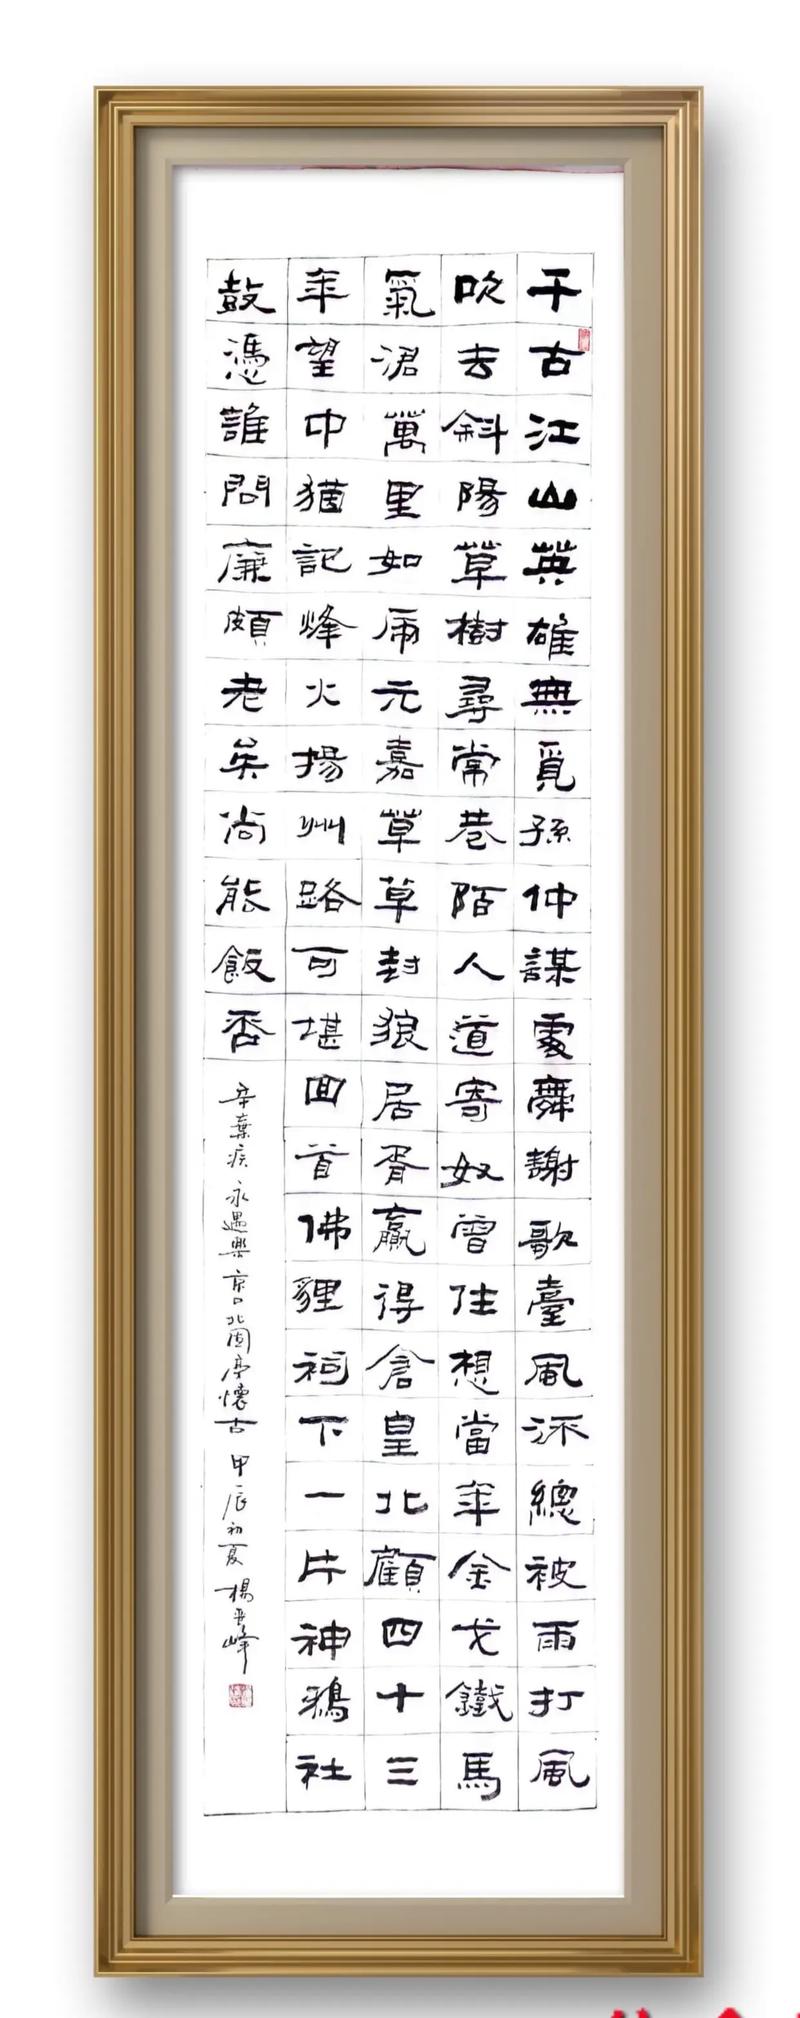 千古江山英雄無覓孫仲謀處舞謝歌臺風流總被雨打風
吹去斜陽草樹尋常巷陌人道寄奴曾住想當年金戈鐵馬
氣涒萬里如虎元嘉草草封狼居胥贏得倉皇北顧四十三
年望中猶記烽火揚州路可堪回首佛貍祠下一片神鴉社
鼓憑誰問廉頗老矣尚能飯否
辛棄疾 永遇樂 京口北固亭懷古 甲辰初夏 楊峰